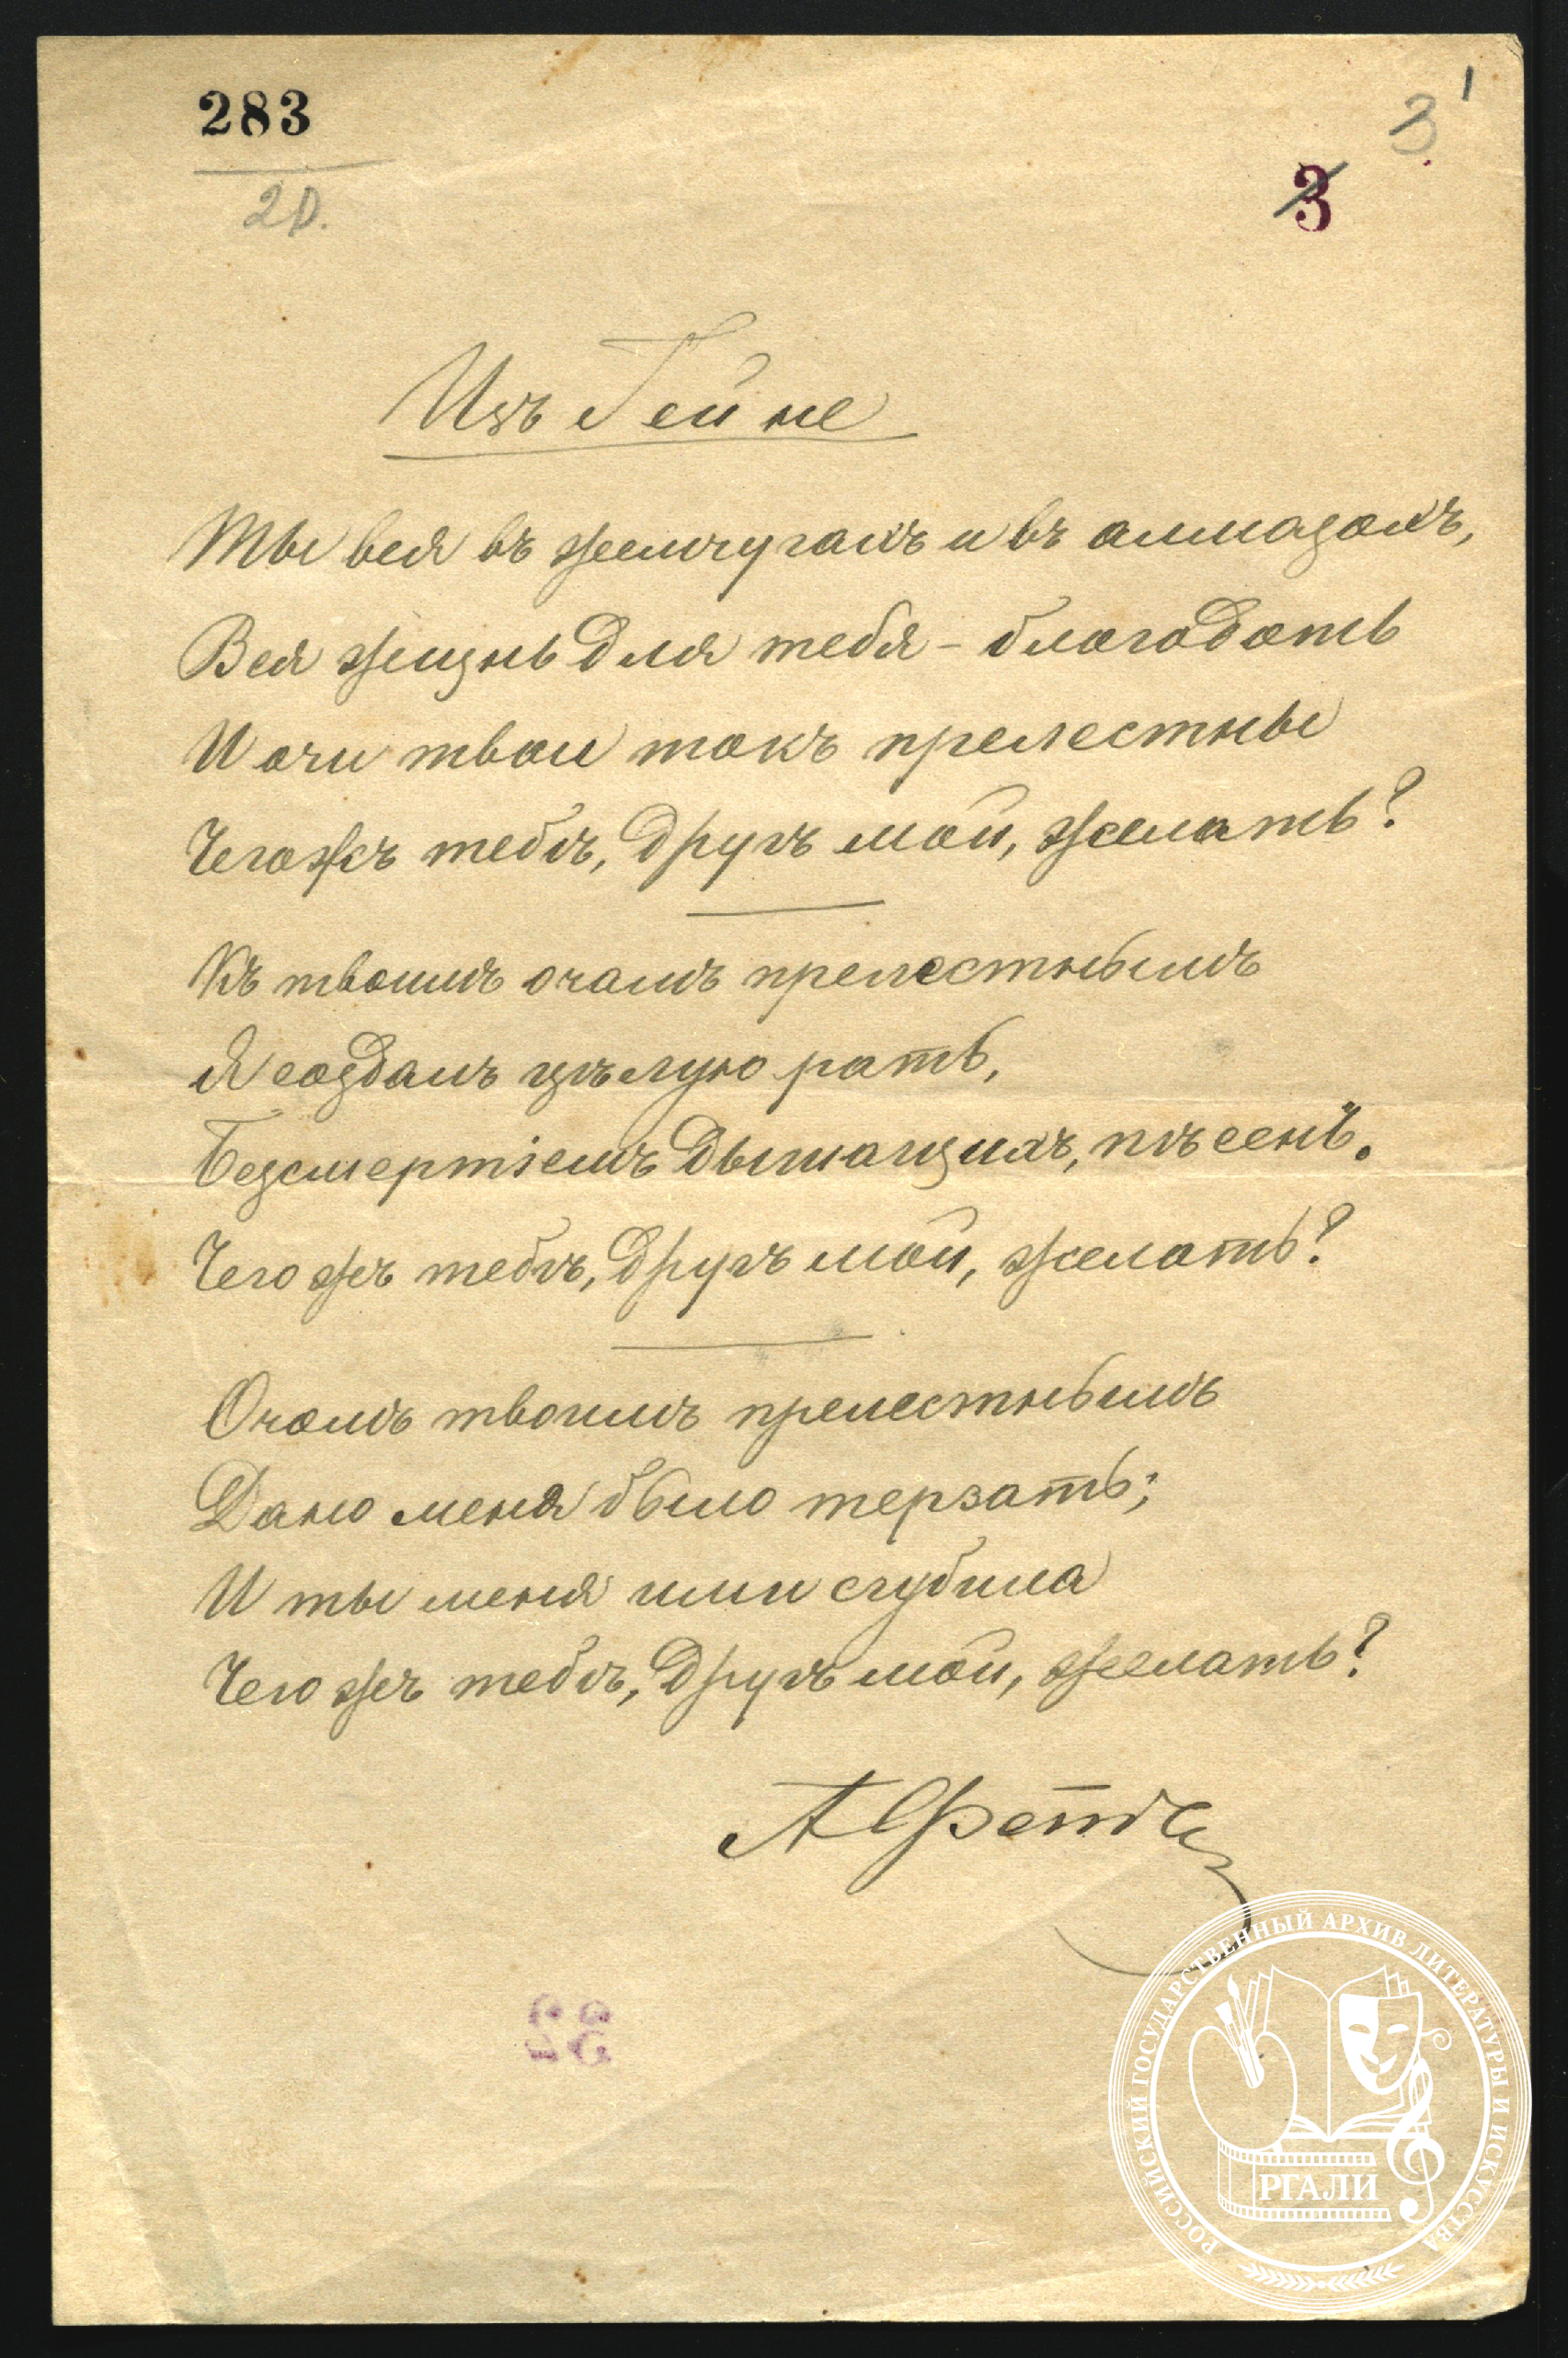 283
20.
3
1
3
Изъ Гейне
Ты вся въ жемчугахъ и въ алмазахъ,
Вся жизнь для тебя – благодать
И очи твои такъ прелестны
Чегожъ тебѣ, другъ мой, желать?
Къ твоимъ очамъ прелестнымъ
Я создалъ цѣлую рать,
Безсмертіемъ дышащихъ, пѣсенъ.
Чего жъ тебѣ, другъ мой, желать?
Очамъ твоимъ прелестнымъ
Дано меня было терзать;
И ты меня ими сгубила
Чего жъ тебѣ, другъ мой, желать?
А Фетъ
РОССИЙСКИЙ ГОСУДАРСТВЕННЫЙ АРХИВ ЛИТЕРАТУРЫ И ИСКУССТВА
РГАЛИ